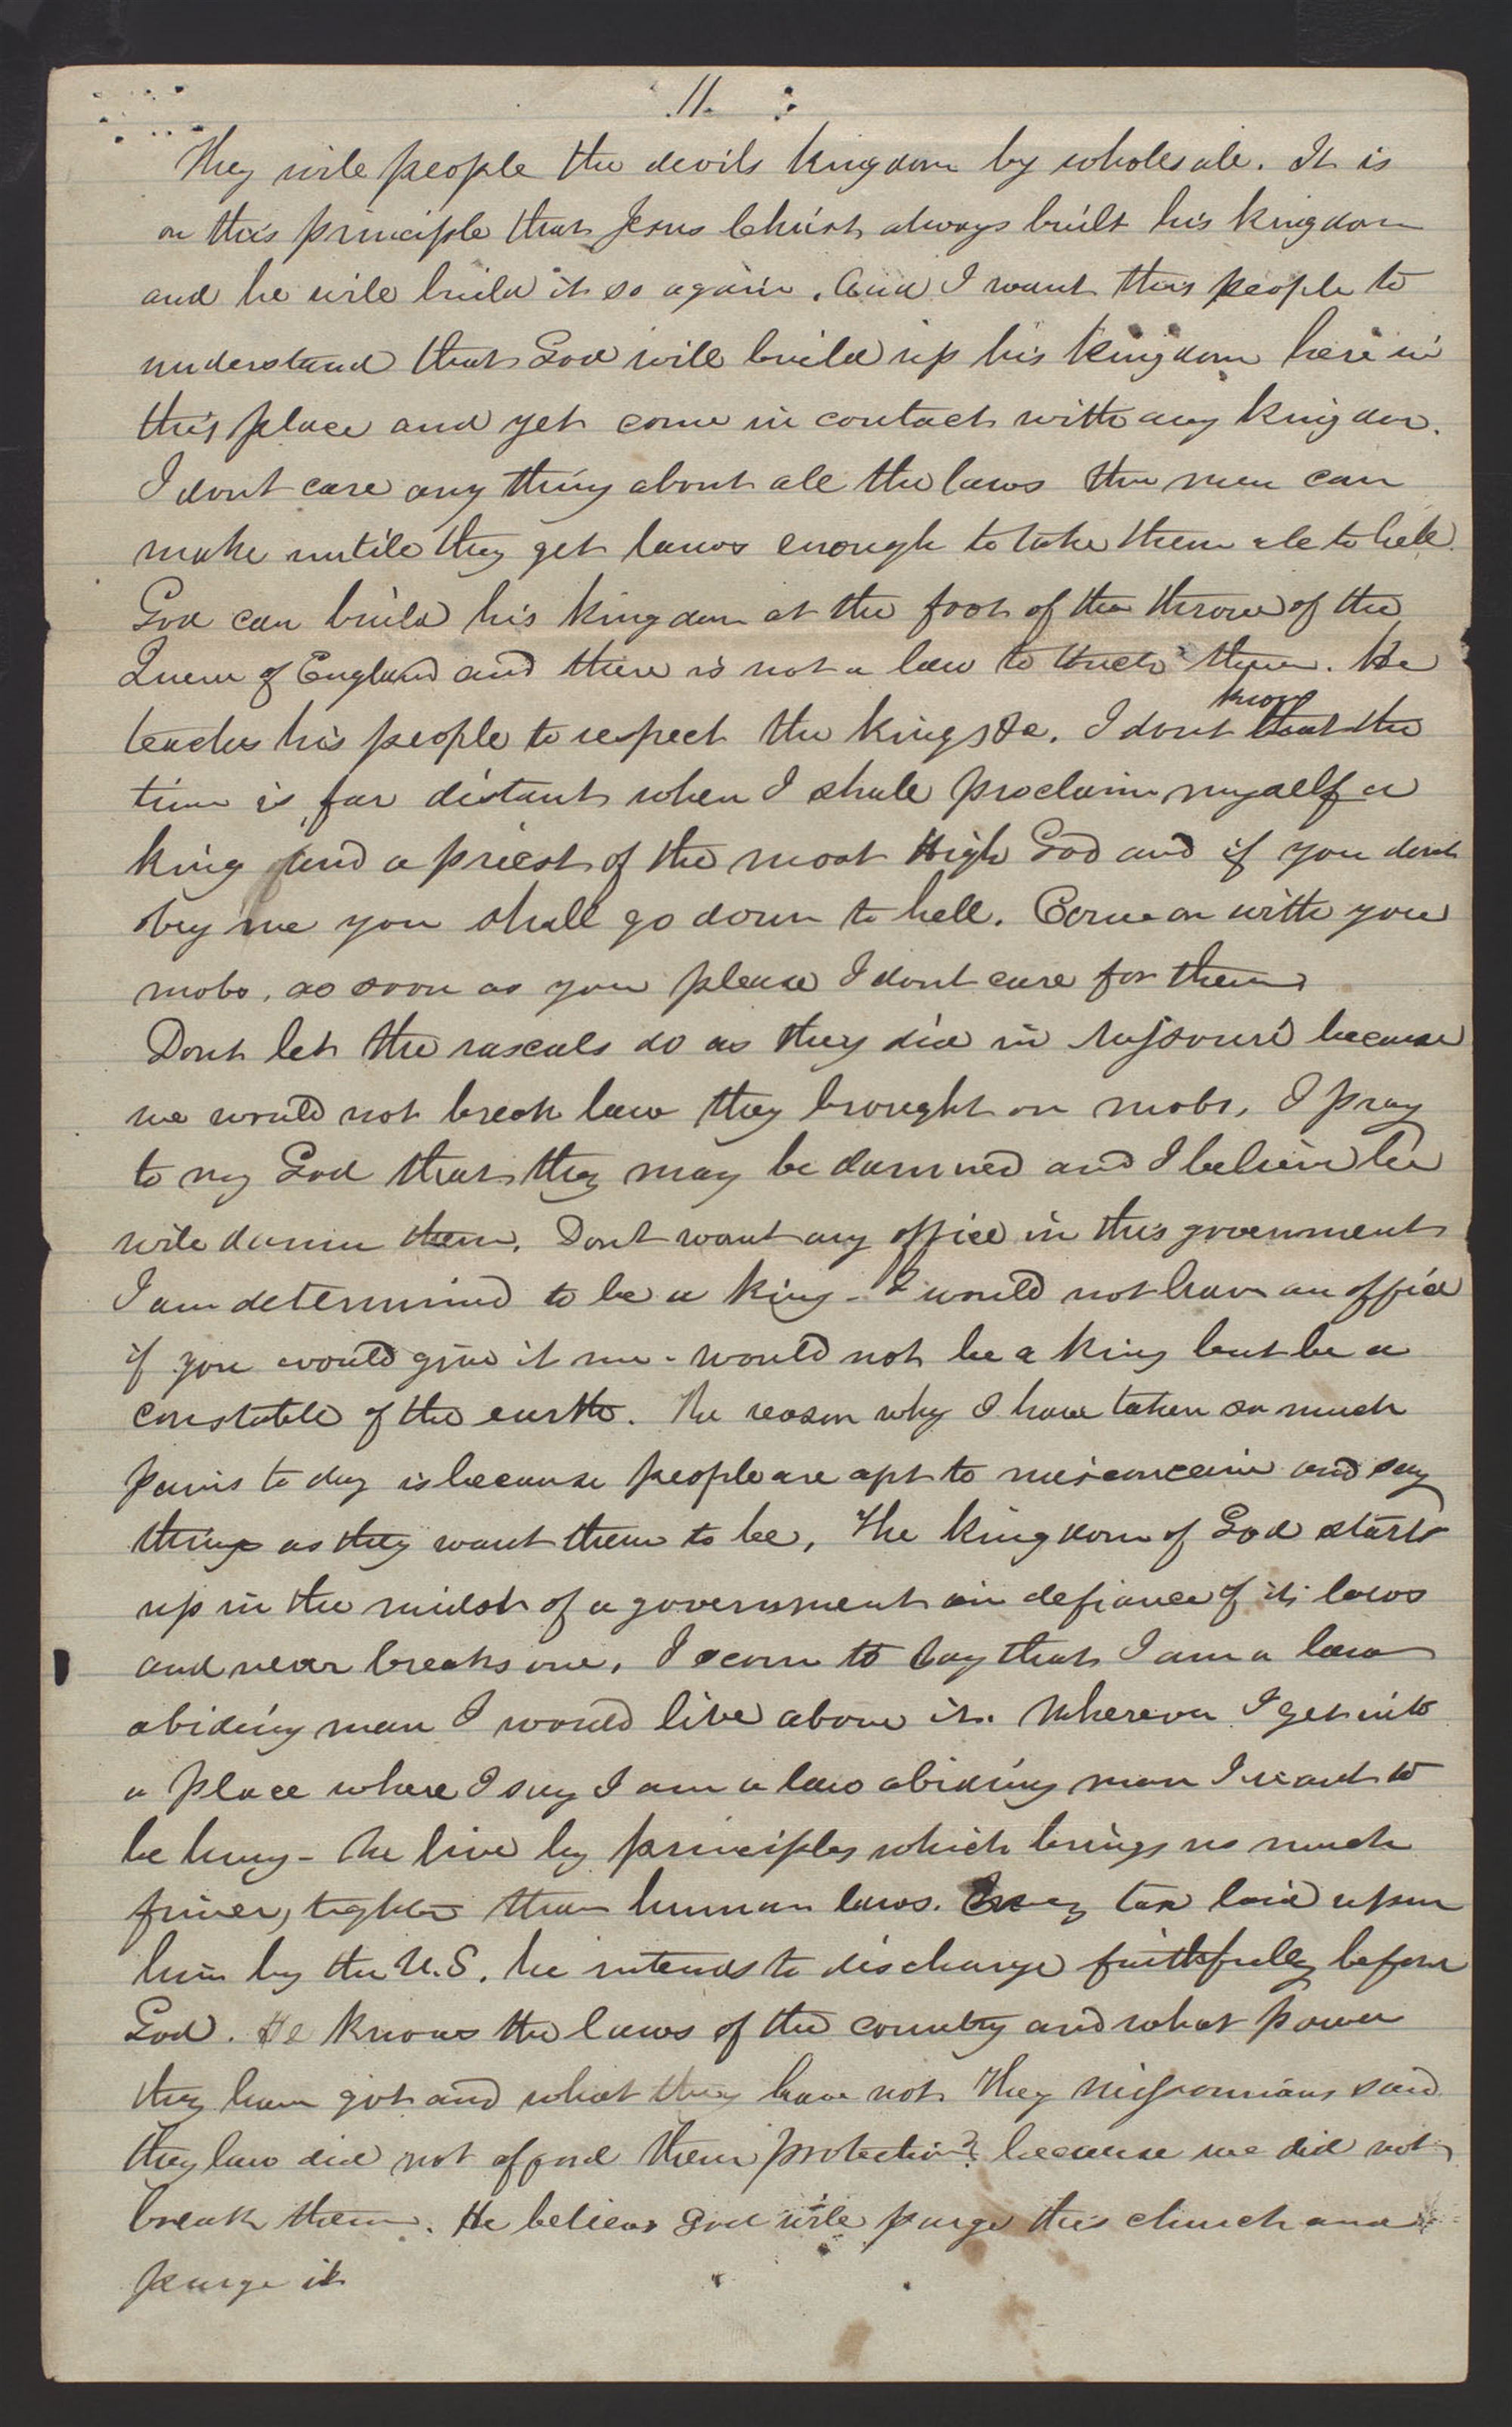 11.
They will people the devils kingdom by wholesale. It is
on this principle that Jesus Christ always built his kingdom
and he will build it so again. And I want this people to
understand that God will build up his kingdom here in
this place and yet come in contact with any kingdom.
I dont care any thing about all the laws the men can
make untill they get laws enough to take them all to hell.
God can build his kingdom at the foot of the throne of the
Queen of England and there is not a law to touch them. He
teaches his people to respect the kings &c. I dont know that the
time is far distant when I shall proclaim myself a
king and a priest of the most High God and if you dont
obey me you shall go down to hell. Come on with you
mobs, as soon as you please I dont care for them
Dont let the rascals do as they did in Missouri because
we would not break law they brought on mobs, I pray
to my God that they may be damned and I believe he
will damn them. Dont want any office in this government
I am determined to be a king - I would not have an office
if you would give it me - would not be a king but be a
constable of the earth. The reason why I have taken so much
pains to day is because people are apt to misconceive and say
things as they want them to be, The kingdom of God starts
up in the midst of a government in defiance of its laws
and never breaks one, I scorn to say that I am a law
abiding man I would live above it. Wherever I get into
a place where I say I am a law abiding man I want to
be hung - We live by principles which brings us much
finer, tighter than human laws. Every tax laid upon
him by the U.S. he intends to discharge faithfully before
God. He knows the laws of the country and what power
they have got and what they have not They Missourians said
they law did not afford them protection? because we did not
break them. He believes God will purge this church and
purge it